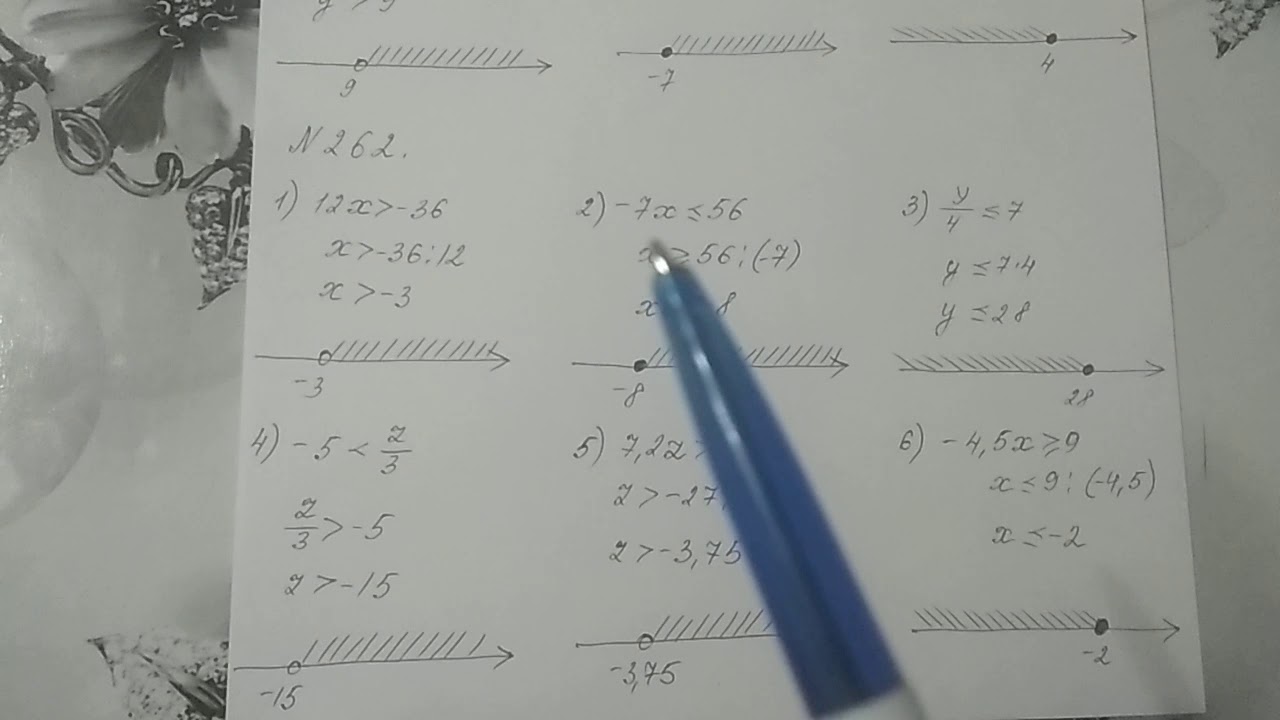 y > 9
9
-7
4
N 262.
1) 12x > -36
x > -36 : 12
x > -3
-3
2) -7x ≤ 56
x ≥ 56 : (-7)
x 8
-8
3) y/4 ≤ 7
y ≤ 7·4
y ≤ 28
28
4) -5 < z/3
z/3 > -5
z > -15
-15
5) 7,2z >
z > -27,
z > -3,75
-3,75
6) -4,5x ≥ 9
x ≤ 9 : (-4,5)
x ≤ -2
-2